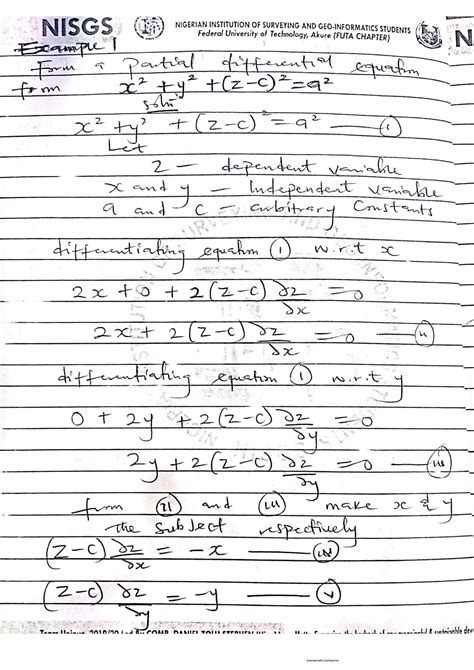 NISGS
NIGERIAN INSTITUTION OF SURVEYING AND GEO-INFORMATICS STUDENTS
Federal University of Technology, Akure (FUTA CHAPTER)
N
Example 1
Form a partial differential equation
from x² + y² + (z-c)² = a²
soln
x² + y² + (z-c)² = a² — (i)
Let
z — dependent variable
x and y — Independent variable
a and c — arbitrary Constants
differentiating equation (i) w.r.t x
2x + 0 + 2(z-c) ∂z/∂x = 0
2x + 2(z-c) ∂z/∂x = 0 — (ii)
differentiating equation (i) w.r.t y
0 + 2y + 2(z-c) ∂z/∂y = 0
2y + 2(z-c) ∂z/∂y = 0 — (iii)
from (ii) and (iii) make x & y
the subject respectively
(z-c) ∂z/∂x = -x — (iv)
(z-c) ∂z/∂y = -y — (v)